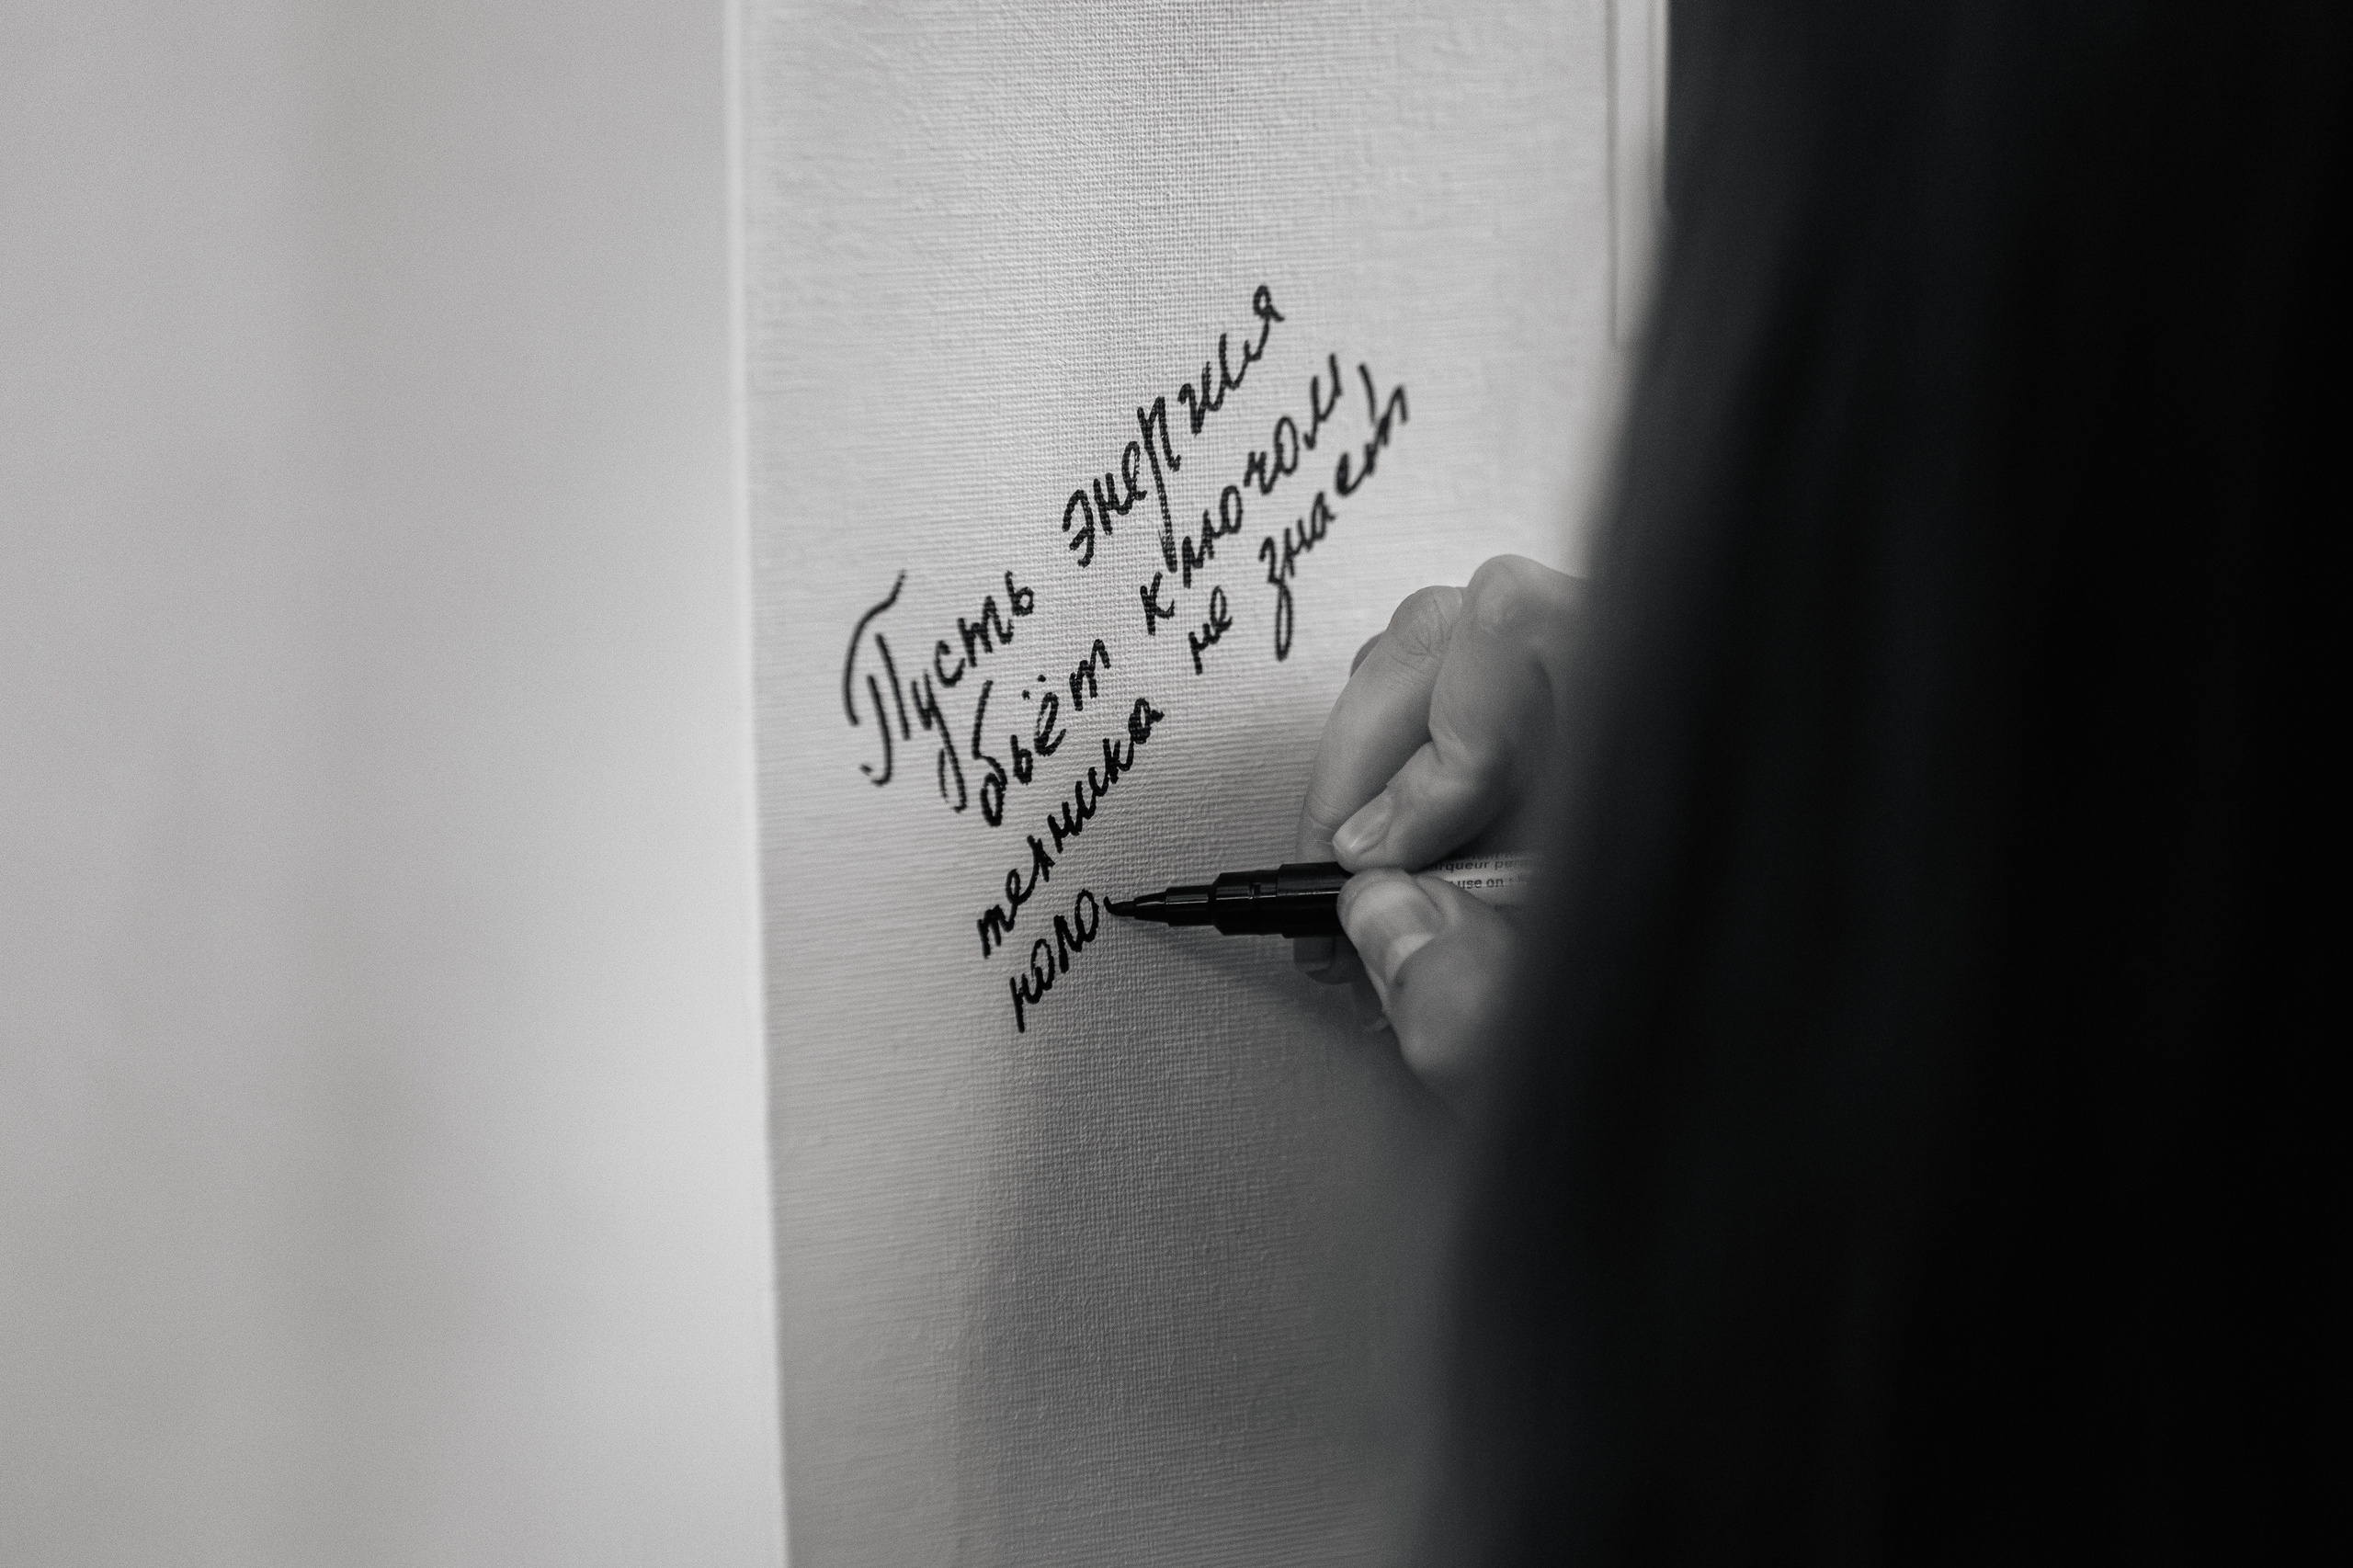 Пусть энергия
бьёт ключом,
техника не знает
поло
use on